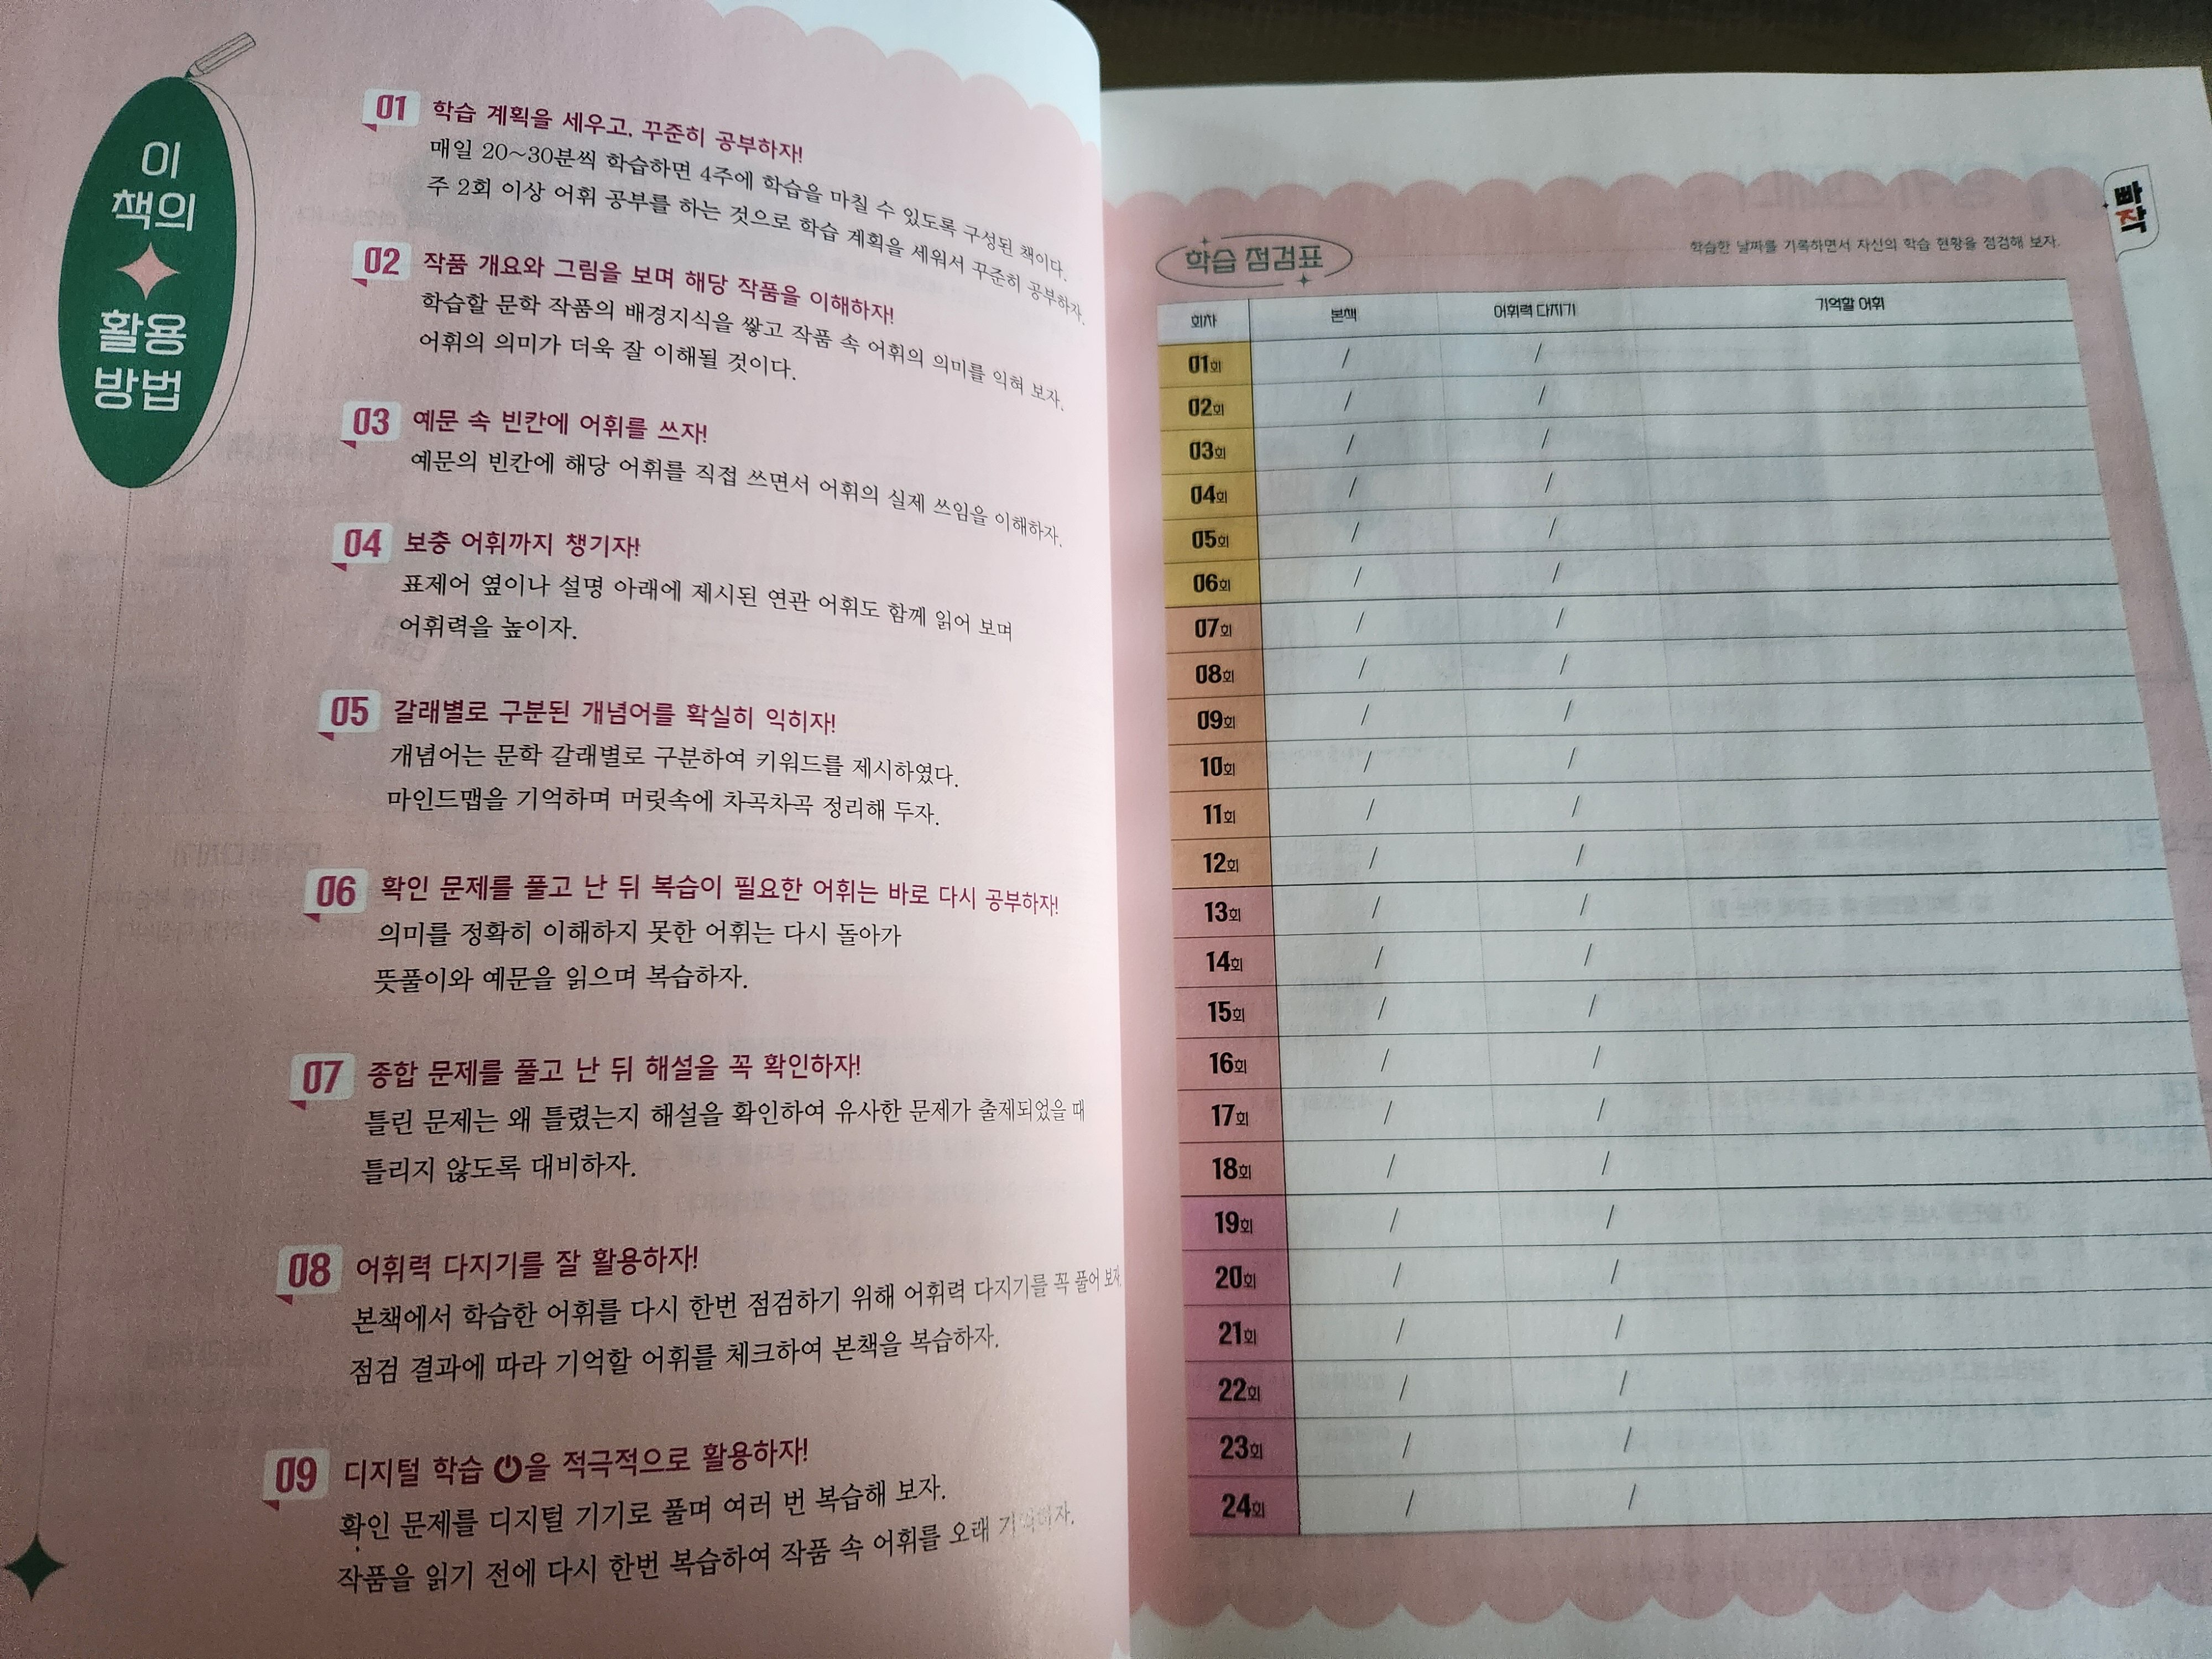 이
책의
활용
방법
01 학습 계획을 세우고, 꾸준히 공부하자!
매일 20~30분씩 학습하면 4주에 학습을 마칠 수 있도록 구성된 책이다.
주 2회 이상 어휘 공부를 하는 것으로 학습 계획을 세워서 꾸준히 공부하자.
02 작품 개요와 그림을 보며 해당 작품을 이해하자!
학습할 문학 작품의 배경지식을 쌓고 작품 속 어휘의 의미를 익혀 보자.
어휘의 의미가 더욱 잘 이해될 것이다.
03 예문 속 빈칸에 어휘를 쓰자!
예문의 빈칸에 해당 어휘를 직접 쓰면서 어휘의 실제 쓰임을 이해하자.
04 보충 어휘까지 챙기자!
표제어 옆이나 설명 아래에 제시된 연관 어휘도 함께 읽어 보며
어휘력을 높이자.
05 갈래별로 구분된 개념어를 확실히 익히자!
개념어는 문학 갈래별로 구분하여 키워드를 제시하였다.
마인드맵을 기억하며 머릿속에 차곡차곡 정리해 두자.
06 확인 문제를 풀고 난 뒤 복습이 필요한 어휘는 바로 다시 공부하자!
의미를 정확히 이해하지 못한 어휘는 다시 돌아가
뜻풀이와 예문을 읽으며 복습하자.
07 종합 문제를 풀고 난 뒤 해설을 꼭 확인하자!
틀린 문제는 왜 틀렸는지 해설을 확인하여 유사한 문제가 출제되었을 때
틀리지 않도록 대비하자.
08 어휘력 다지기를 잘 활용하자!
본책에서 학습한 어휘를 다시 한번 점검하기 위해 어휘력 다지기를 꼭 풀어 보자.
점검 결과에 따라 기억할 어휘를 체크하여 본책을 복습하자.
09 디지털 학습 을 적극적으로 활용하자!
확인 문제를 디지털 기기로 풀며 여러 번 복습해 보자.
작품을 읽기 전에 다시 한번 복습하여 작품 속 어휘를 오래 기억하자.
빠작
학습 점검표
학습한 날짜를 기록하면서 자신의 학습 현황을 점검해 보자.
회차 본책 어휘력 다지기 기억할 어휘
01회 / /
02회 / /
03회 / /
04회 / /
05회 / /
06회 / /
07회 / /
08회 / /
09회 / /
10회 / /
11회 / /
12회 / /
13회 / /
14회 / /
15회 / /
16회 / /
17회 / /
18회 / /
19회 / /
20회 / /
21회 / /
22회 / /
23회 / /
24회 / /